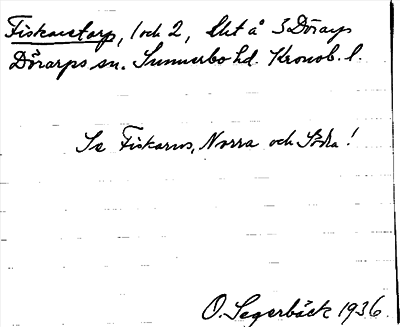 Fiskarstorp, 1 och 2, Akt å 3 Dörarp
Dörarps sn. Sunnerbo hd. Kronob. l.
Se Fiskarns, Norra och Södra!
O. Segerbäck 1936